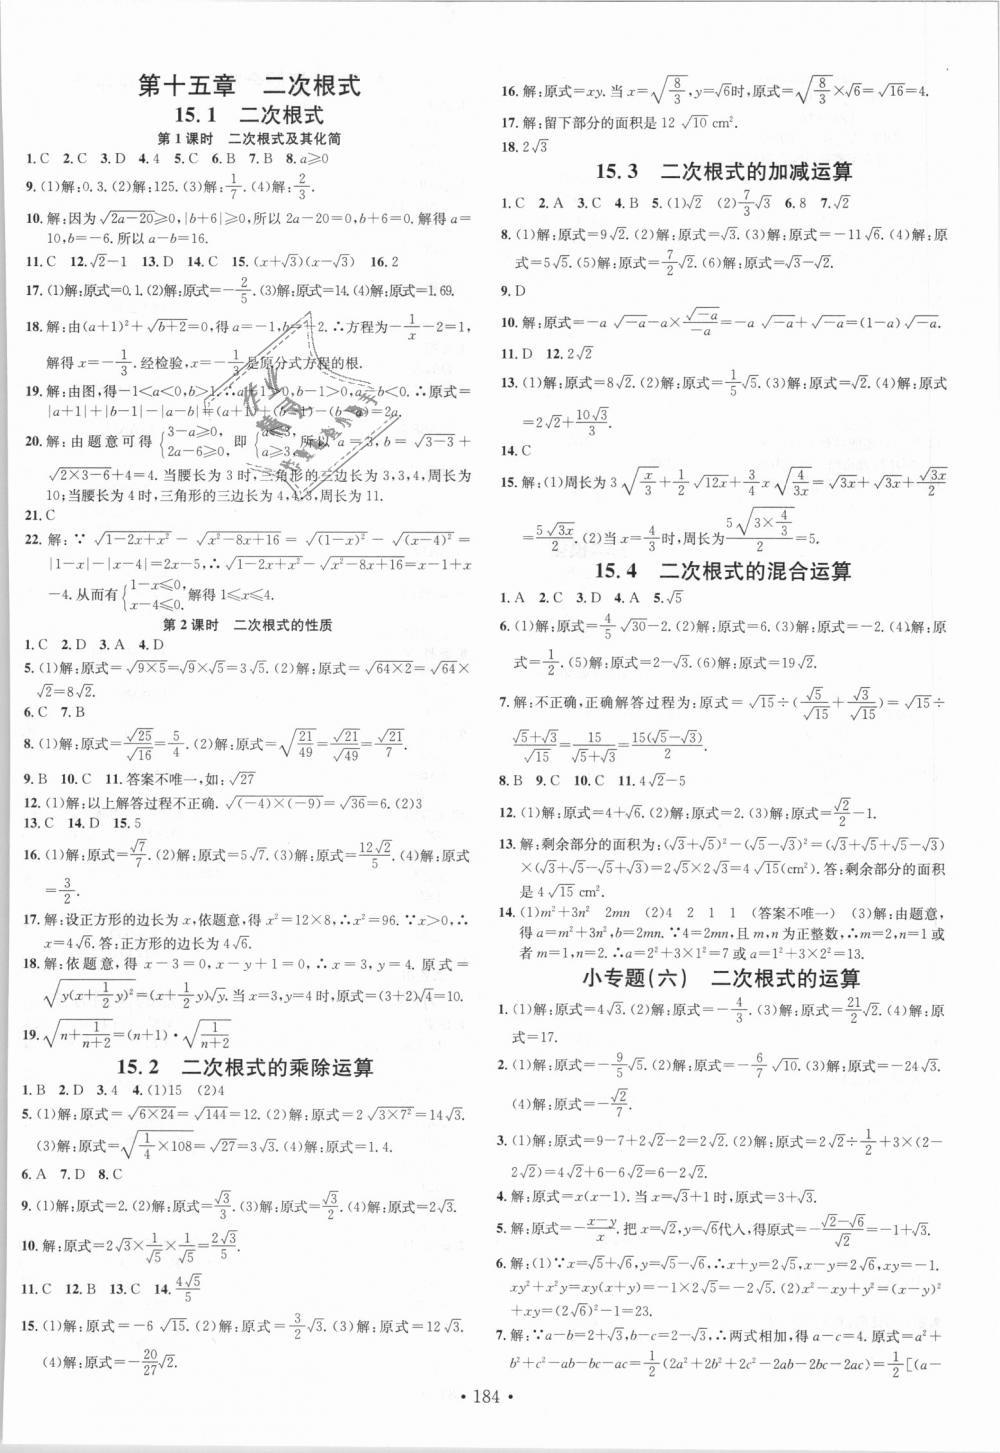 第十五章 二次根式
15.1 二次根式
第1课时 二次根式及其化简
1.C 2.C 3.D 4.4 5.C 6.B 7.B 8.a≥0
9.(1)解:0.3.(2)解:125.(3)解:1/7.(4)解:2/3.
10.解:因为√(2a-20)≥0,|b+6|≥0,所以2a-20=0,b+6=0.解得a=
10,b=-6.所以a-b=16.
11.C 12.√2-1 13.D 14.C 15.(x+√3)(x-√3) 16.2
17.(1)解:原式=0.1.(2)解:原式=-2/5.(3)解:原式=14.(4)解:原式=1.69.
18.解:由(a+1)²+√(b+2)=0,得a=-1,b=-2.∴方程为-1/x-2=1,
解得x=-1/3.经检验,x=-1/3是原分式方程的根.
19.解:由图,得-1<a<0,b>1.∴a+1>0,b-1>0,a-b<0.∴原式=
|a+1|+|b-1|-|a-b|=(a+1)+(b-1)-(b-a)=2a.
20.解:由题意可得{3-a≥0, 2a-6≥0, 即{a≤3, a≥3. 所以a=3,b=√(3-3)+
√(2×3-6)+4=4.当腰长为3时,三角形的三边长为3,3,4,周长为
10;当腰长为4时,三角形的三边长为4,4,3,周长为11.
21.C
22.解:∵√(1-2x+x²)-√(x²-8x+16)=√((1-x)²)-√((x-4)²)=
|1-x|-|x-4|=2x-5,∴√(1-2x+x²)-√(x²-8x+16)=x-1+x
-4.从而有{1-x≤0, x-4≤0. 解得1≤x≤4.
第2课时 二次根式的性质
1.C 2.D 3.A 4.D
5.(1)解:原式=√(9×5)=√9×√5=3√5.(2)解:原式=√(64×2)=√64×
√2=8√2.
6.C 7.B
8.(1)解:原式=√25/√16=5/4.(2)解:原式=√(21/49)=√21/√49=√21/7.
9.B 10.C 11.答案不唯一,如:√27
12.(1)解:以上解答过程不正确.√((-4)×(-9))=√36=6.(2)3
13.C 14.D 15.5
16.(1)解:原式=√7/7.(2)解:原式=5√7.(3)解:原式=12√2/5.(4)解:原式
=3/2.
17.解:设正方形的边长为x,依题意,得x²=12×8,∴x²=96.∵x>0,∴
x=4√6.答:正方形的边长为4√6.
18.解:依题意,得x-3=0,x-y+1=0,∴x=3,y=4.原式=
√(y(x+1/2y)²)=(x+1/2y)√y.当x=3,y=4时,原式=(3+2)√4=10.
19.√(n+1/(n+2))=(n+1)·√(1/(n+2))
15.2 二次根式的乘除运算
1.B 2.D 3.4 4.(1)15 (2)4
5.(1)解:原式=√(6×24)=√144=12.(2)解:原式=2√(3×7²)=14√3.
(3)解:原式=√(1/4×108)=√27=3√3.(4)解:原式=1.4.
6.A 7.D 8.C
9.(1)解:原式=2.(2)解:原式=√3/3.(3)解:原式=√3/2.(4)解:原式=2√3.
10.解:原式=2√3×1/√5×1/√5=2√3/5.
11.C 12.B 13.C 14.4√5/5
15.(1)解:原式=-6√15.(2)解:原式=3/2√3.(3)解:原式=12√3.
(4)解:原式=-20/27√2.
16.解:原式=xy.当x=√(8/3),y=√6时,原式=√(8/3)×√6=√16=4.
17.解:留下部分的面积是12√10 cm².
18.2√3
15.3 二次根式的加减运算
1.C 2.A 3.C 4.B 5.(1)√2 (2)7/3√3 6.8 7.√2
8.(1)解:原式=9√2.(2)解:原式=√3.(3)解:原式=-11√6.(4)解:原
式=5√5.(5)解:原式=7/2√2.(6)解:原式=√3-√2.
9.D
10.解:原式=-a√(-a)-a×√(-a)/(-a)=-a√(-a)+√(-a)=(1-a)√(-a).
11.D 12.2√2
13.(1)解:原式=8√2.(2)解:原式=1/5√5.(3)解:原式=3√2.(4)解:原式
=2√2+10√3/3.
14.C
15.解:(1)周长为3√(x/3)+1/2√(12x)+3/4x√(4/(3x))=√(3x)+√(3x)+√(3x)/2
=5√(3x)/2.(2)当x=4/3时,周长为5√(3×4/3)/2=5.
15.4 二次根式的混合运算
1.A 2.C 3.D 4.A 5.√5
6.(1)解:原式=4/5√30-2.(2)解:原式=6.(3)解:原式=-2.(4)解:原
式=1/2.(5)解:原式=2-√3.(6)解:原式=19√2.
7.解:不正确,正确解答过程为:原式=√15÷(√5/√15+√3/√15)=√15÷
(√5+√3)/√15=15/(√5+√3)=15(√5-√3)/2.
8.B 9.C 10.C 11.4√2-5
12.(1)解:原式=4+√6.(2)解:原式=2.(3)解:原式=√2/2-1.
13.解:剩余部分的面积为:(√3+√5)²-(√5-√3)²=(√3+√5+√5-√3)
×(√3+√5-√5+√3)=2√5×2√3=4√15(cm²).答:剩余部分的面积
是4√15 cm².
14.(1)m²+3n² 2mn (2)4 2 1 1 (答案不唯一) (3)解:由题意,
得a=m²+3n²,b=2mn.∵4=2mn,且m,n为正整数,∴m=2,n=1或
者m=1,n=2.∴a=2²+3×1²=7或a=1²+3×2²=13.
小专题(六) 二次根式的运算
1.(1)解:原式=4√3.(2)解:原式=-4/3.(3)解:原式=21/2√2.(4)解:原
式=17.
2.(1)解:原式=-9/5√5.(2)解:原式=-6/7√10.(3)解:原式=-24√3.
(4)解:原式=-√2/7.
3.(1)解:原式=9-7+2√2-2=2√2.(2)解:原式=2√2÷1/2+3×(2-
2√2)=4√2+6-6√2=6-2√2.
4.解:原式=x(x-1).当x=√3+1时,原式=3+√3.
5.解:原式=-(x-y)/x.把x=√2,y=√6代入,得原式=-(√2-√6)/√2=-1+√3.
6.解:(1)∵x=√5+√6,y=√5-√6,∴x+y=2√5,x-y=2√6,xy=-1.
xy²+x²y=xy(x+y)=-1×2√5=-2√5.(2)x²-xy+y²=(x-y)²
+xy=(2√6)²-1=23.
7.解:∵a-b=2+√3,b-c=2-√3,∴两式相加,得a-c=4.原式=a²+
b²+c²-ab-bc-ac=1/2(2a²+2b²+2c²-2ab-2bc-2ac)=1/2[(a-
·184·